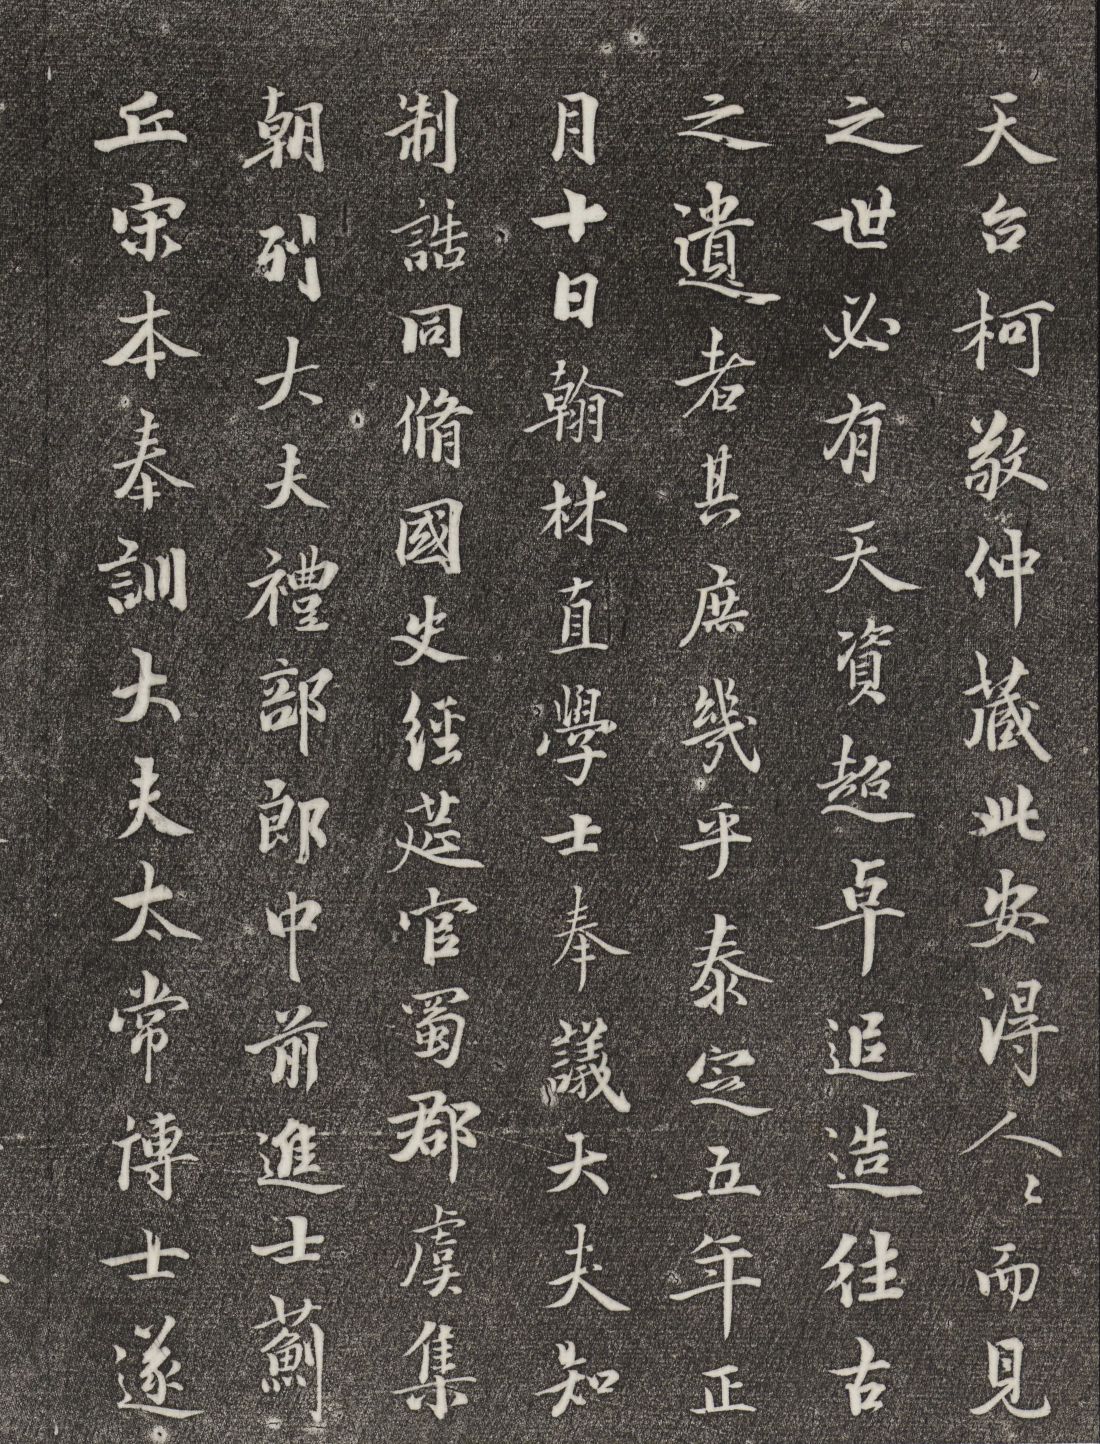 天台柯敬仲藏此安得人〻而見
之世必有天資超卓追造往古
之遺者其庶幾乎泰定五年正
月十日翰林直學士奉議大夫知
制誥同脩國史經莚官蜀郡虞集
朝列大夫禮部郎中前進士薊
丘宋本奉訓大夫太常博士遂